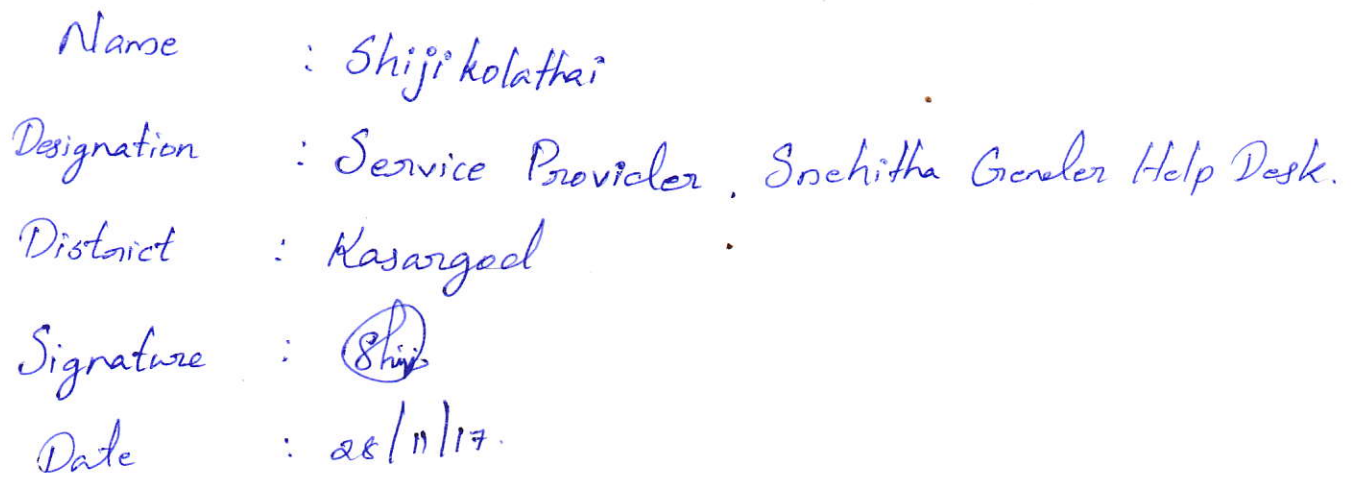 Name : Shiji kolathai
Designation : Service Provider, Snehitha Gender Help Desk.
District : Kasargod
Signature : Shiji
Date : 28/11/17.